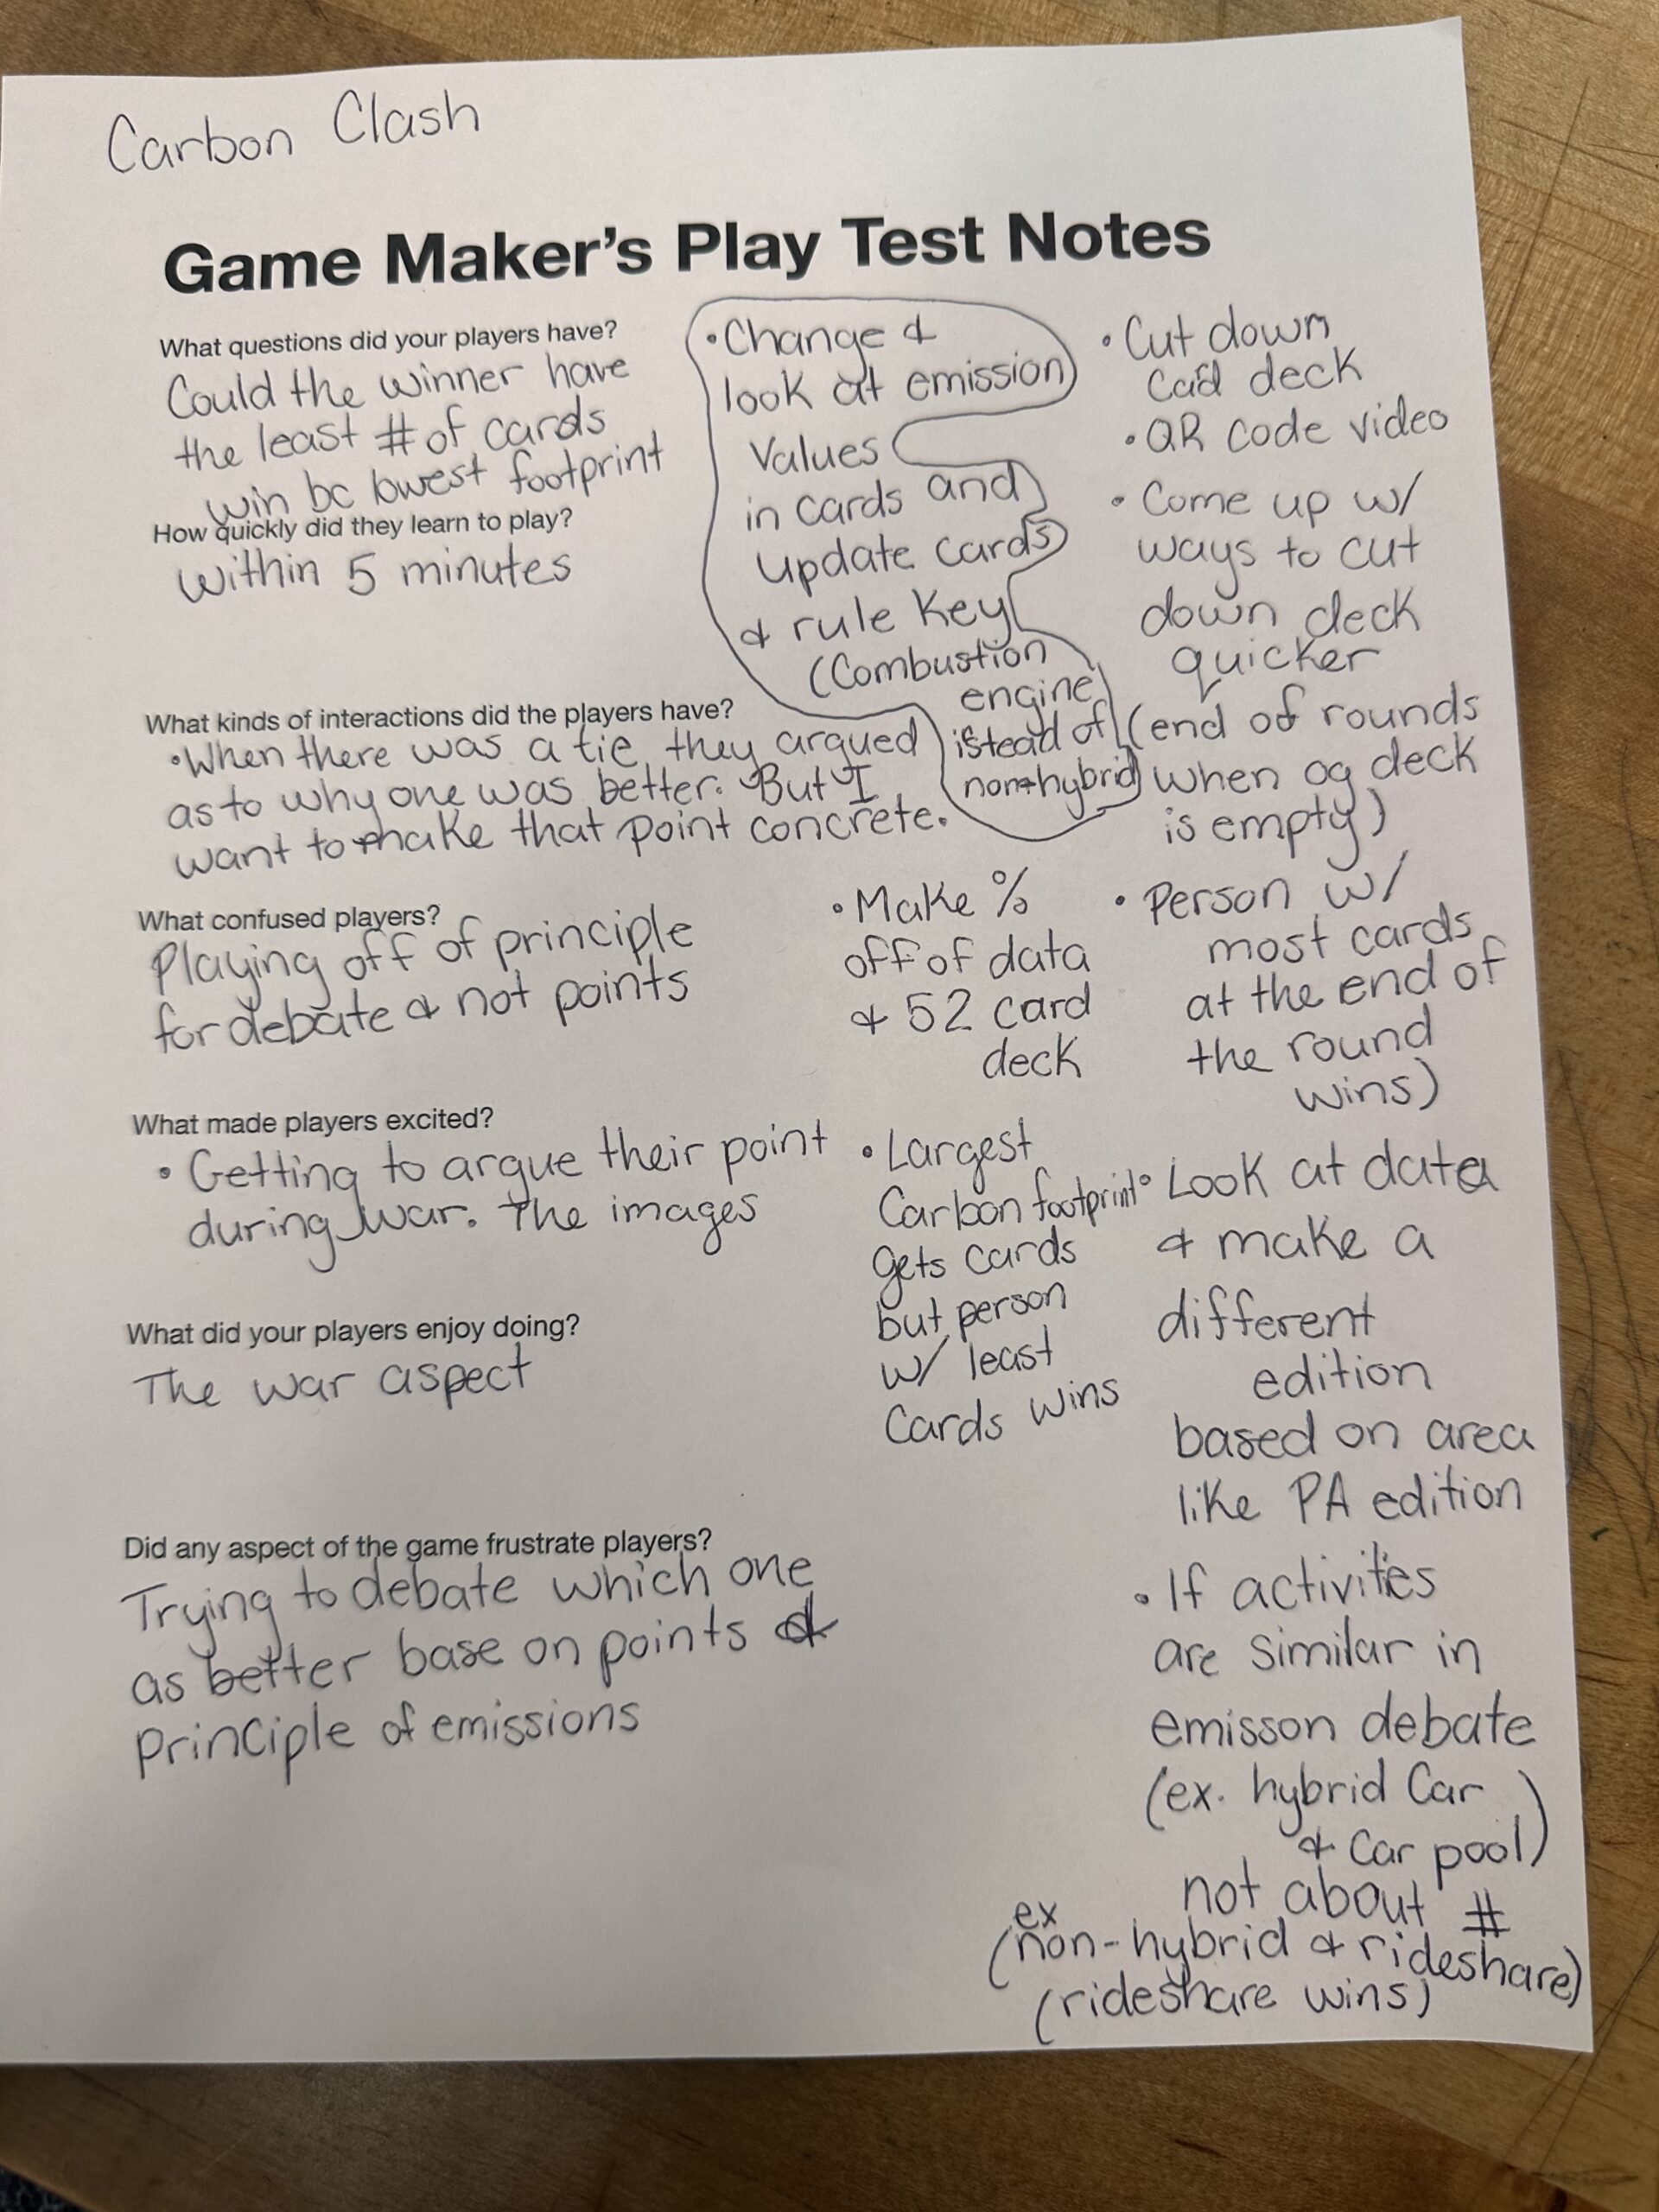 Carbon Clash
Game Maker's Play Test Notes
What questions did your players have?
Could the winner have
the least # of cards
win bc lowest footprint
How quickly did they learn to play?
within 5 minutes
What kinds of interactions did the players have?
•When there was a tie they argued
as to why one was better. But I
want to make that point concrete.
What confused players?
Playing off of principle
for debate & not points
What made players excited?
• Getting to argue their point
during war. The images
What did your players enjoy doing?
The war aspect
Did any aspect of the game frustrate players?
Trying to debate which one
as better base on points &
principle of emissions
• Change &
look at emission
values
in cards and
update cards
& rule key
(Combustion
engine
istead of
non-hybrid)
• Make %
off of data
& 52 card
deck
• Largest
Carbon footprint
gets cards
but person
w/ least
cards wins
• Cut down
card deck
• QR code video
• Come up w/
ways to cut
down deck
quicker
(end of rounds
when og deck
is empty)
• Person w/
most cards
at the end of
the round
wins)
• Look at data
& make a
different
edition
based on area
like PA edition
• If activities
are similar in
emisson debate
(ex. hybrid Car
& Car pool)
not about #
ex
(non-hybrid & rideshare)
(rideshare wins)